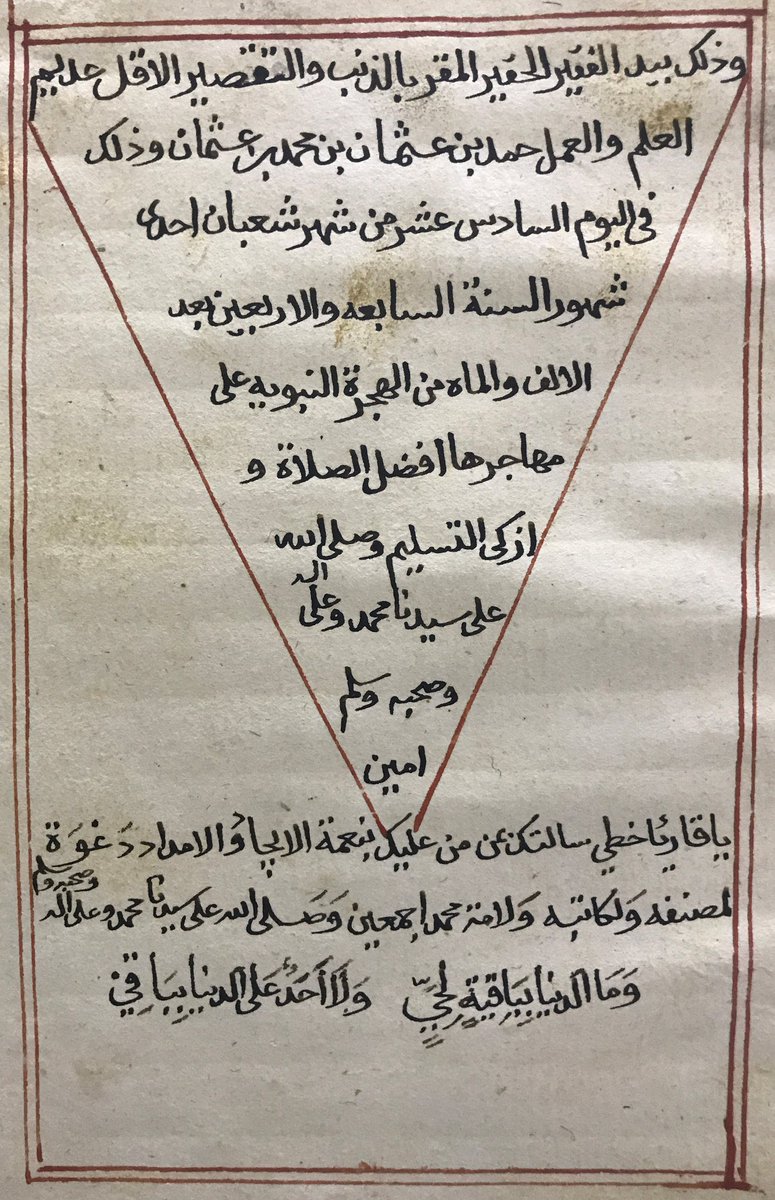 وذلك بيد الفقير الحقير المقر بالذنب والتقصير الاقل عديم
العلم والعمل حمد بن عثمان بن محمد بن عثمان وذلك
في اليوم السادس عشر من شهر شعبان احدى
شهور السنة السابعه والاربعين بعد
الالف والماه من الهجرة النبويه على
مهاجرها افضل الصلاة و
ازكى التسليم وصلى الله
على سيدنا محمد وعلى اله
وصحبه وسلم
امين
يا قارئا خطي سالتك عن من عليك بنعمة الايجاد والامداد دَعْوَة
لمصنفه وَلكاتبه وَلامة محمد اجمعين وَصَلى الله على سيدنا محمد وعلى اله وصحبه وسلم
وَمَا الدنيا بِبَاقيةٍ لحَيٍّ وَلَا أَحَدٌ عَلى الدنيا بِبَاقِيْ